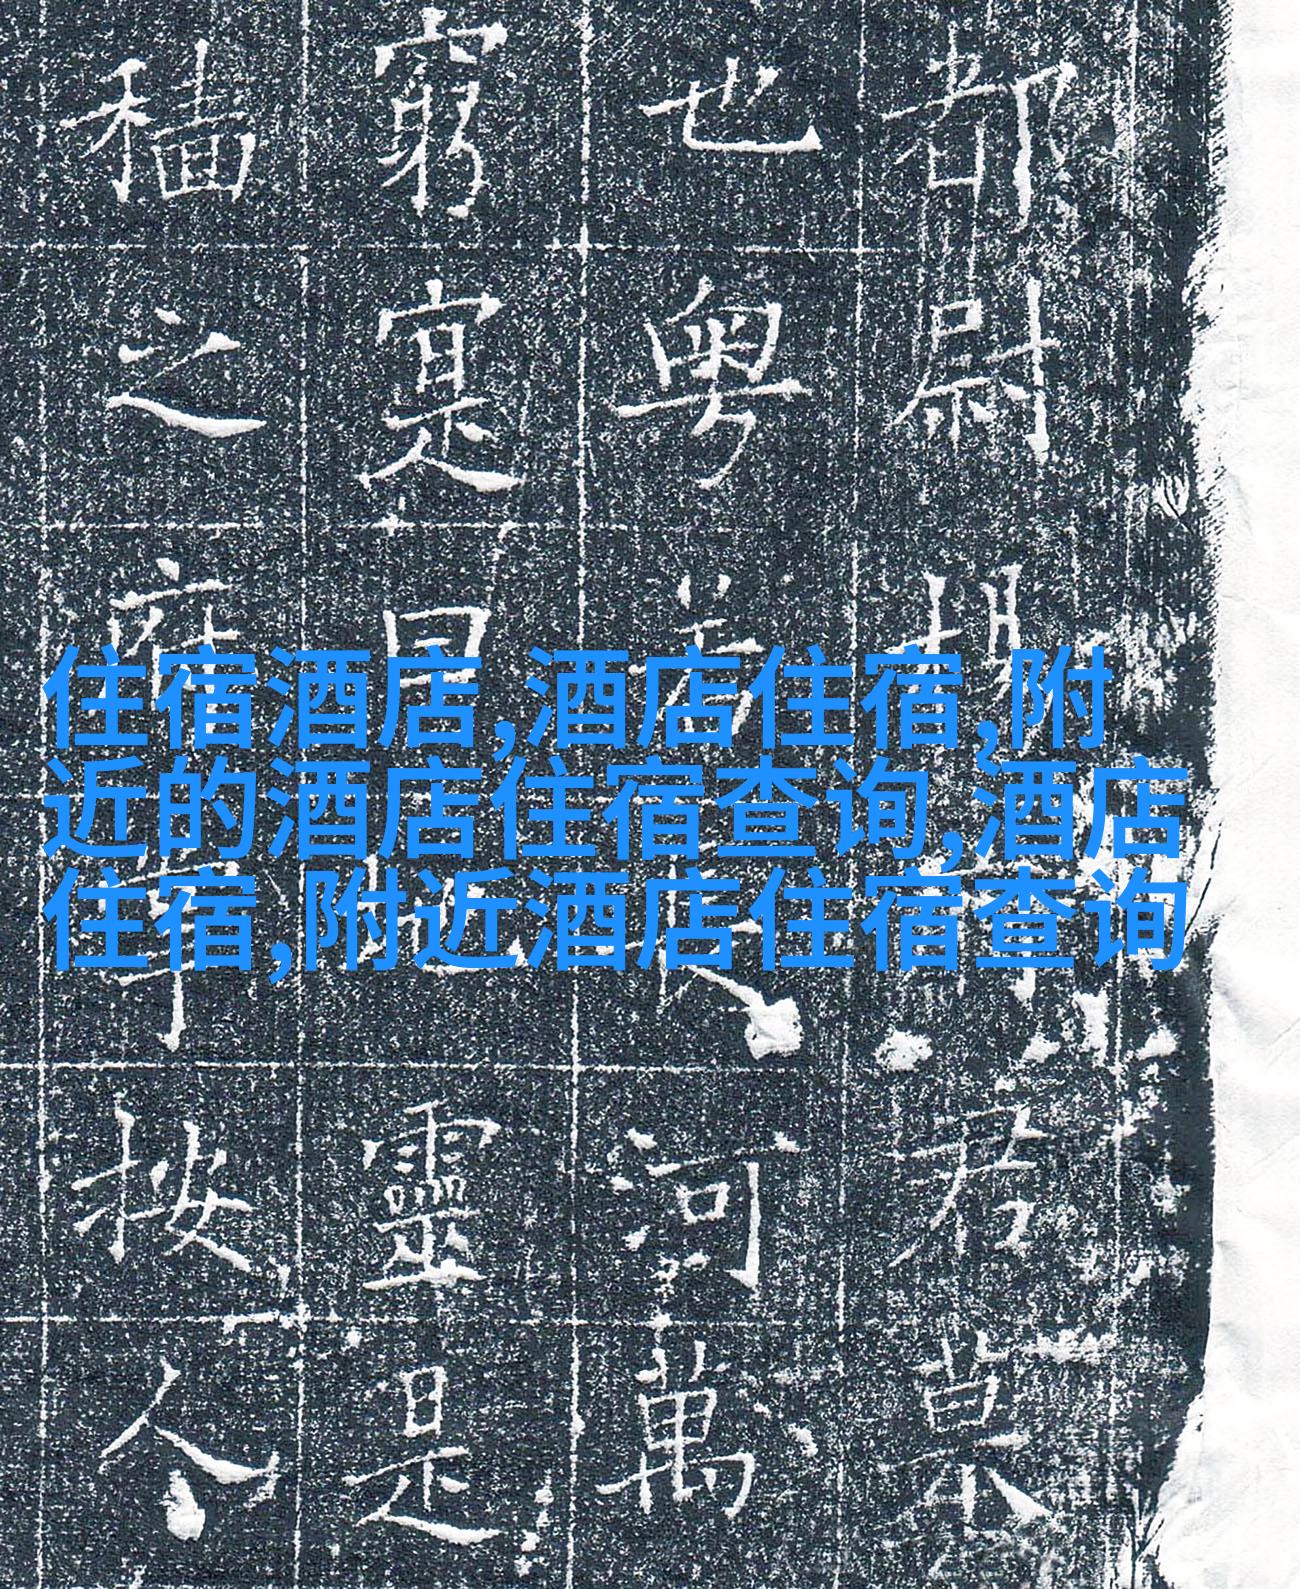 都尉君墓
也粵若河萬
窮寔曰靈是
穡之府按人
住宿酒店,酒店住宿,附
近的酒店住宿查询,酒店
住宿,附近酒店住宿查询